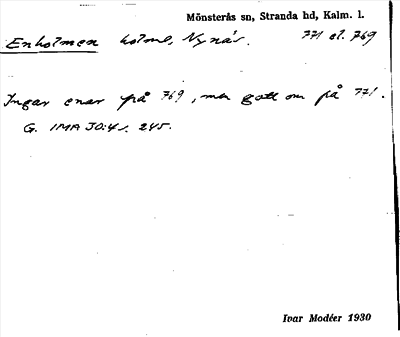 Mönsterås sn, Stranda hd, Kalm. l.
Enholmen holme, Nynäs. 771 el. 769
Ingar enar på 769, men gott om på 771.
G. IMA 30:4 s. 245.
Ivar Modéer 1930